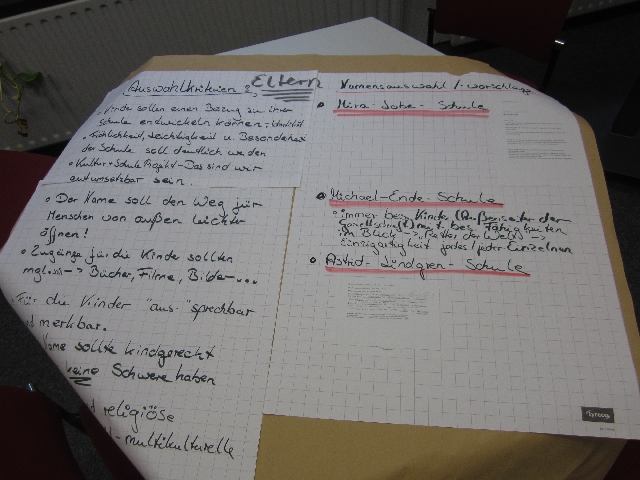 Auswahlkriterien
Eltern
• Kinder sollen einen Bezug zu ihrer
Schule entwickeln können, Identität
• Fröhlichkeit, Leichtigkeit u. Besonderheit
der Schule soll deutlich werden
• Kultur + Schule Projekt - Das sind wir
umsetzbar sein.
• Der Name soll den Weg für
Menschen von außen leichter
öffnen!
• Zugänge für die Kinder sollten
mgl. sein -> Bücher, Filme, Bilder...
Für die Kinder "aus-" sprechbar
merkbar.
Name sollte kindgerecht
keine Schwere haben
religiöse
multikulturelle
Namensauswahl / -vorschläge
• Mira-Lobe-Schule
• Michael-Ende-Schule
• immer bes. Kinder (Außenseiter der
Gesellschaft) mit bes. Fähigkeiten
im Blick -> "Retter der Welt" ->
Einzigartigkeit jedes/jeder Einzelnen
• Astrid-Lindgren-Schule